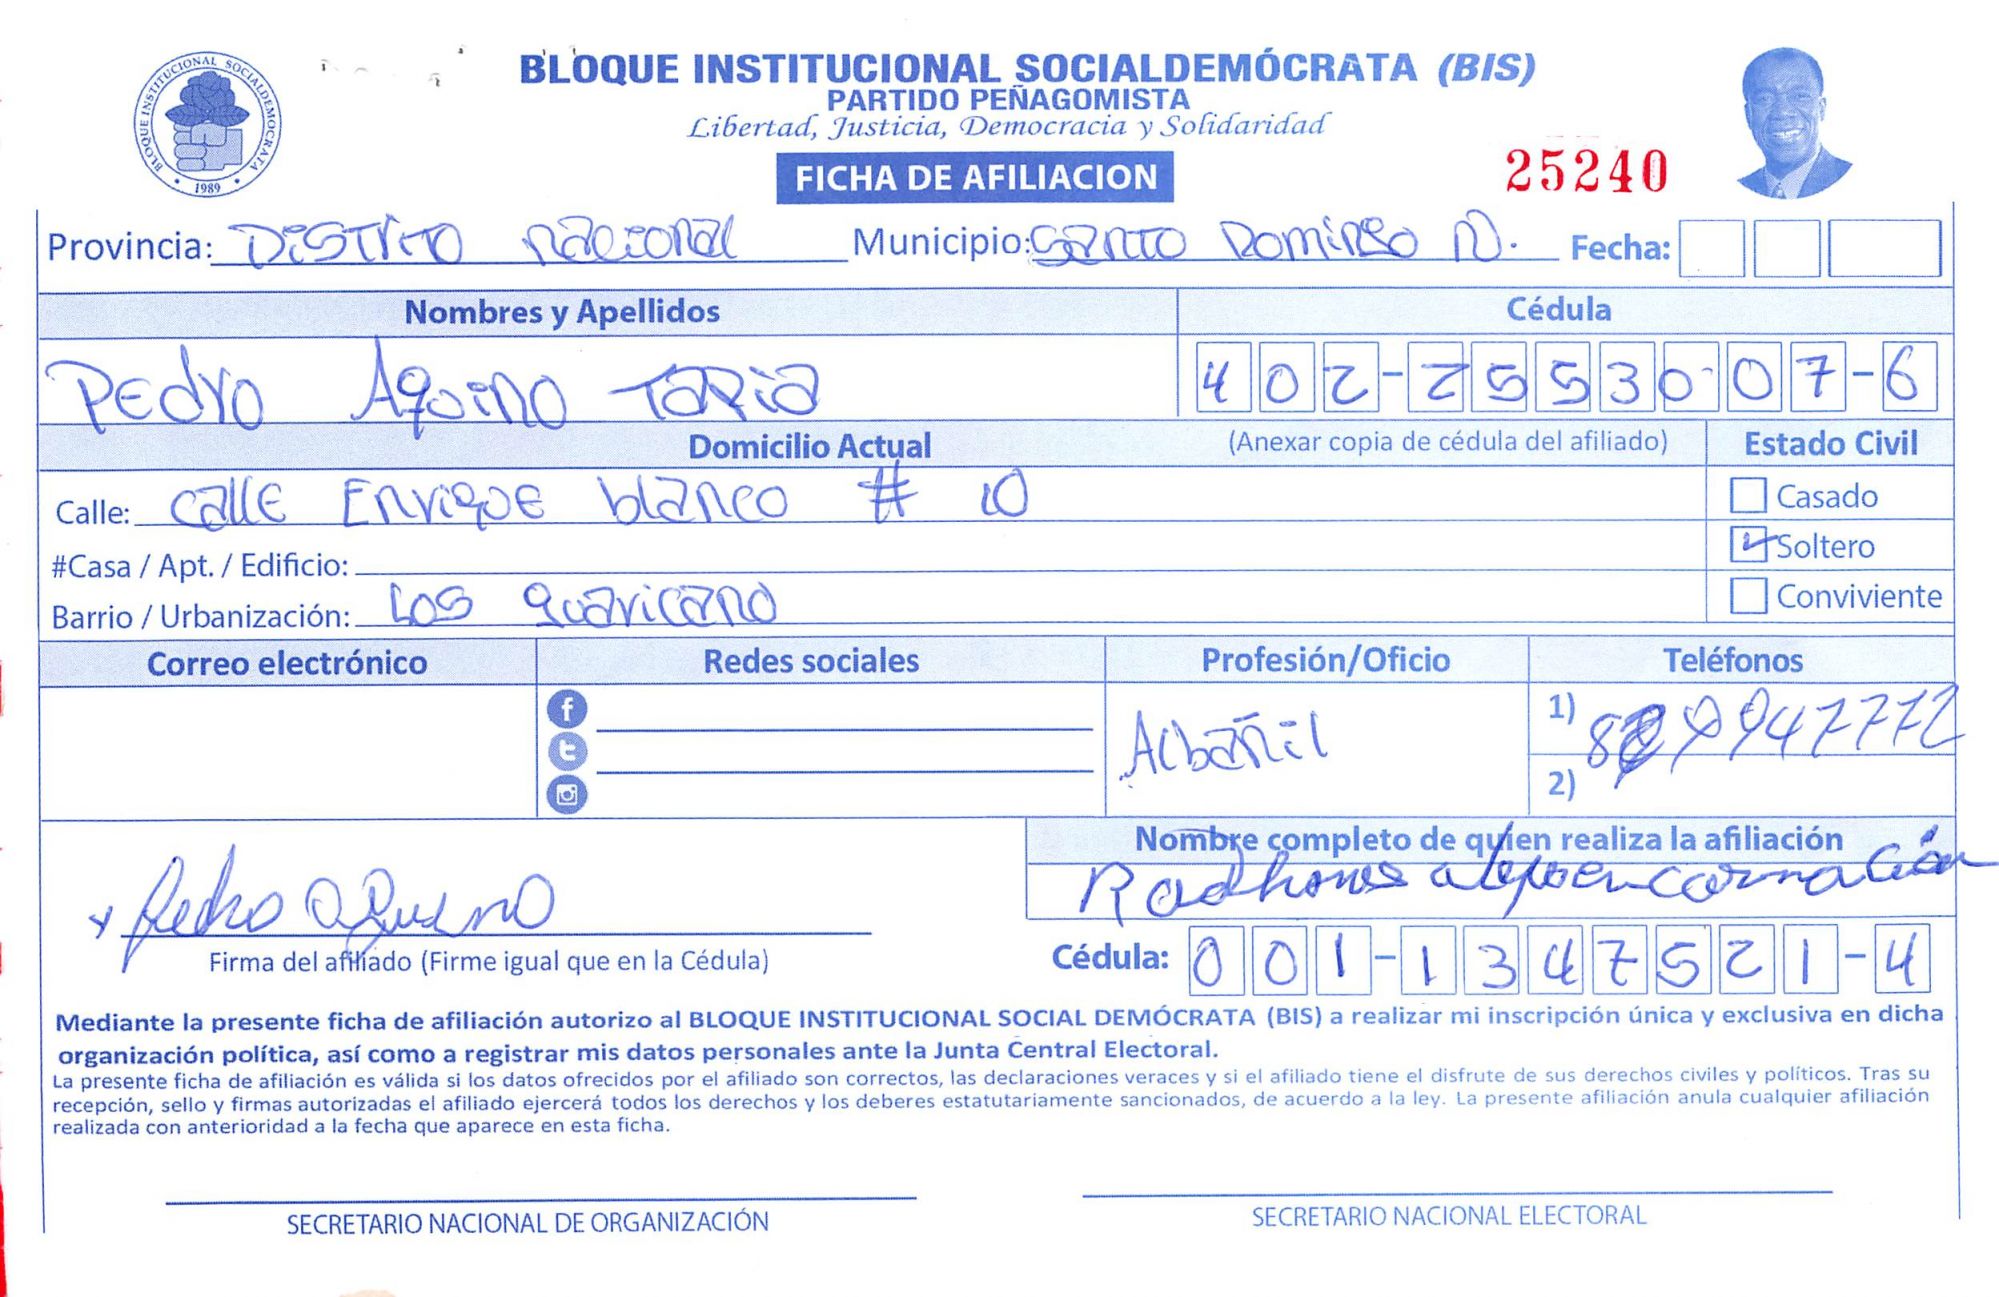 BLOQUE INSTITUCIONAL SOCIALDEMOCRATA
1989
BLOQUE INSTITUCIONAL SOCIALDEMÓCRATA (BIS)
PARTIDO PEÑAGOMISTA
Libertad, Justicia, Democracia y Solidaridad
FICHA DE AFILIACION
25240
Provincia: Distrito nacional Municipio: Santo Domingo N. Fecha:
Nombres y Apellidos Cédula
Pedro Aquino Tapia 402-2553007-6
Domicilio Actual (Anexar copia de cédula del afiliado) Estado Civil
Calle: calle Enrique blanco # 10 Casado
#Casa / Apt. / Edificio: Soltero
Barrio / Urbanización: Los guaricano Conviviente
Correo electrónico Redes sociales Profesión/Oficio Teléfonos
Albañil 1) 8 9 947772
2)
Nombre completo de quien realiza la afiliación
encarnación
Pedro aquino
Firma del afiliado (Firme igual que en la Cédula) Cédula: 001-1347521-4
Mediante la presente ficha de afiliación autorizo al BLOQUE INSTITUCIONAL SOCIAL DEMÓCRATA (BIS) a realizar mi inscripción única y exclusiva en dicha
organización política, así como a registrar mis datos personales ante la Junta Central Electoral.
La presente ficha de afiliación es válida si los datos ofrecidos por el afiliado son correctos, las declaraciones veraces y si el afiliado tiene el disfrute de sus derechos civiles y políticos. Tras su
recepción, sello y firmas autorizadas el afiliado ejercerá todos los derechos y los deberes estatutariamente sancionados, de acuerdo a la ley. La presente afiliación anula cualquier afiliación
realizada con anterioridad a la fecha que aparece en esta ficha.
SECRETARIO NACIONAL DE ORGANIZACIÓN SECRETARIO NACIONAL ELECTORAL